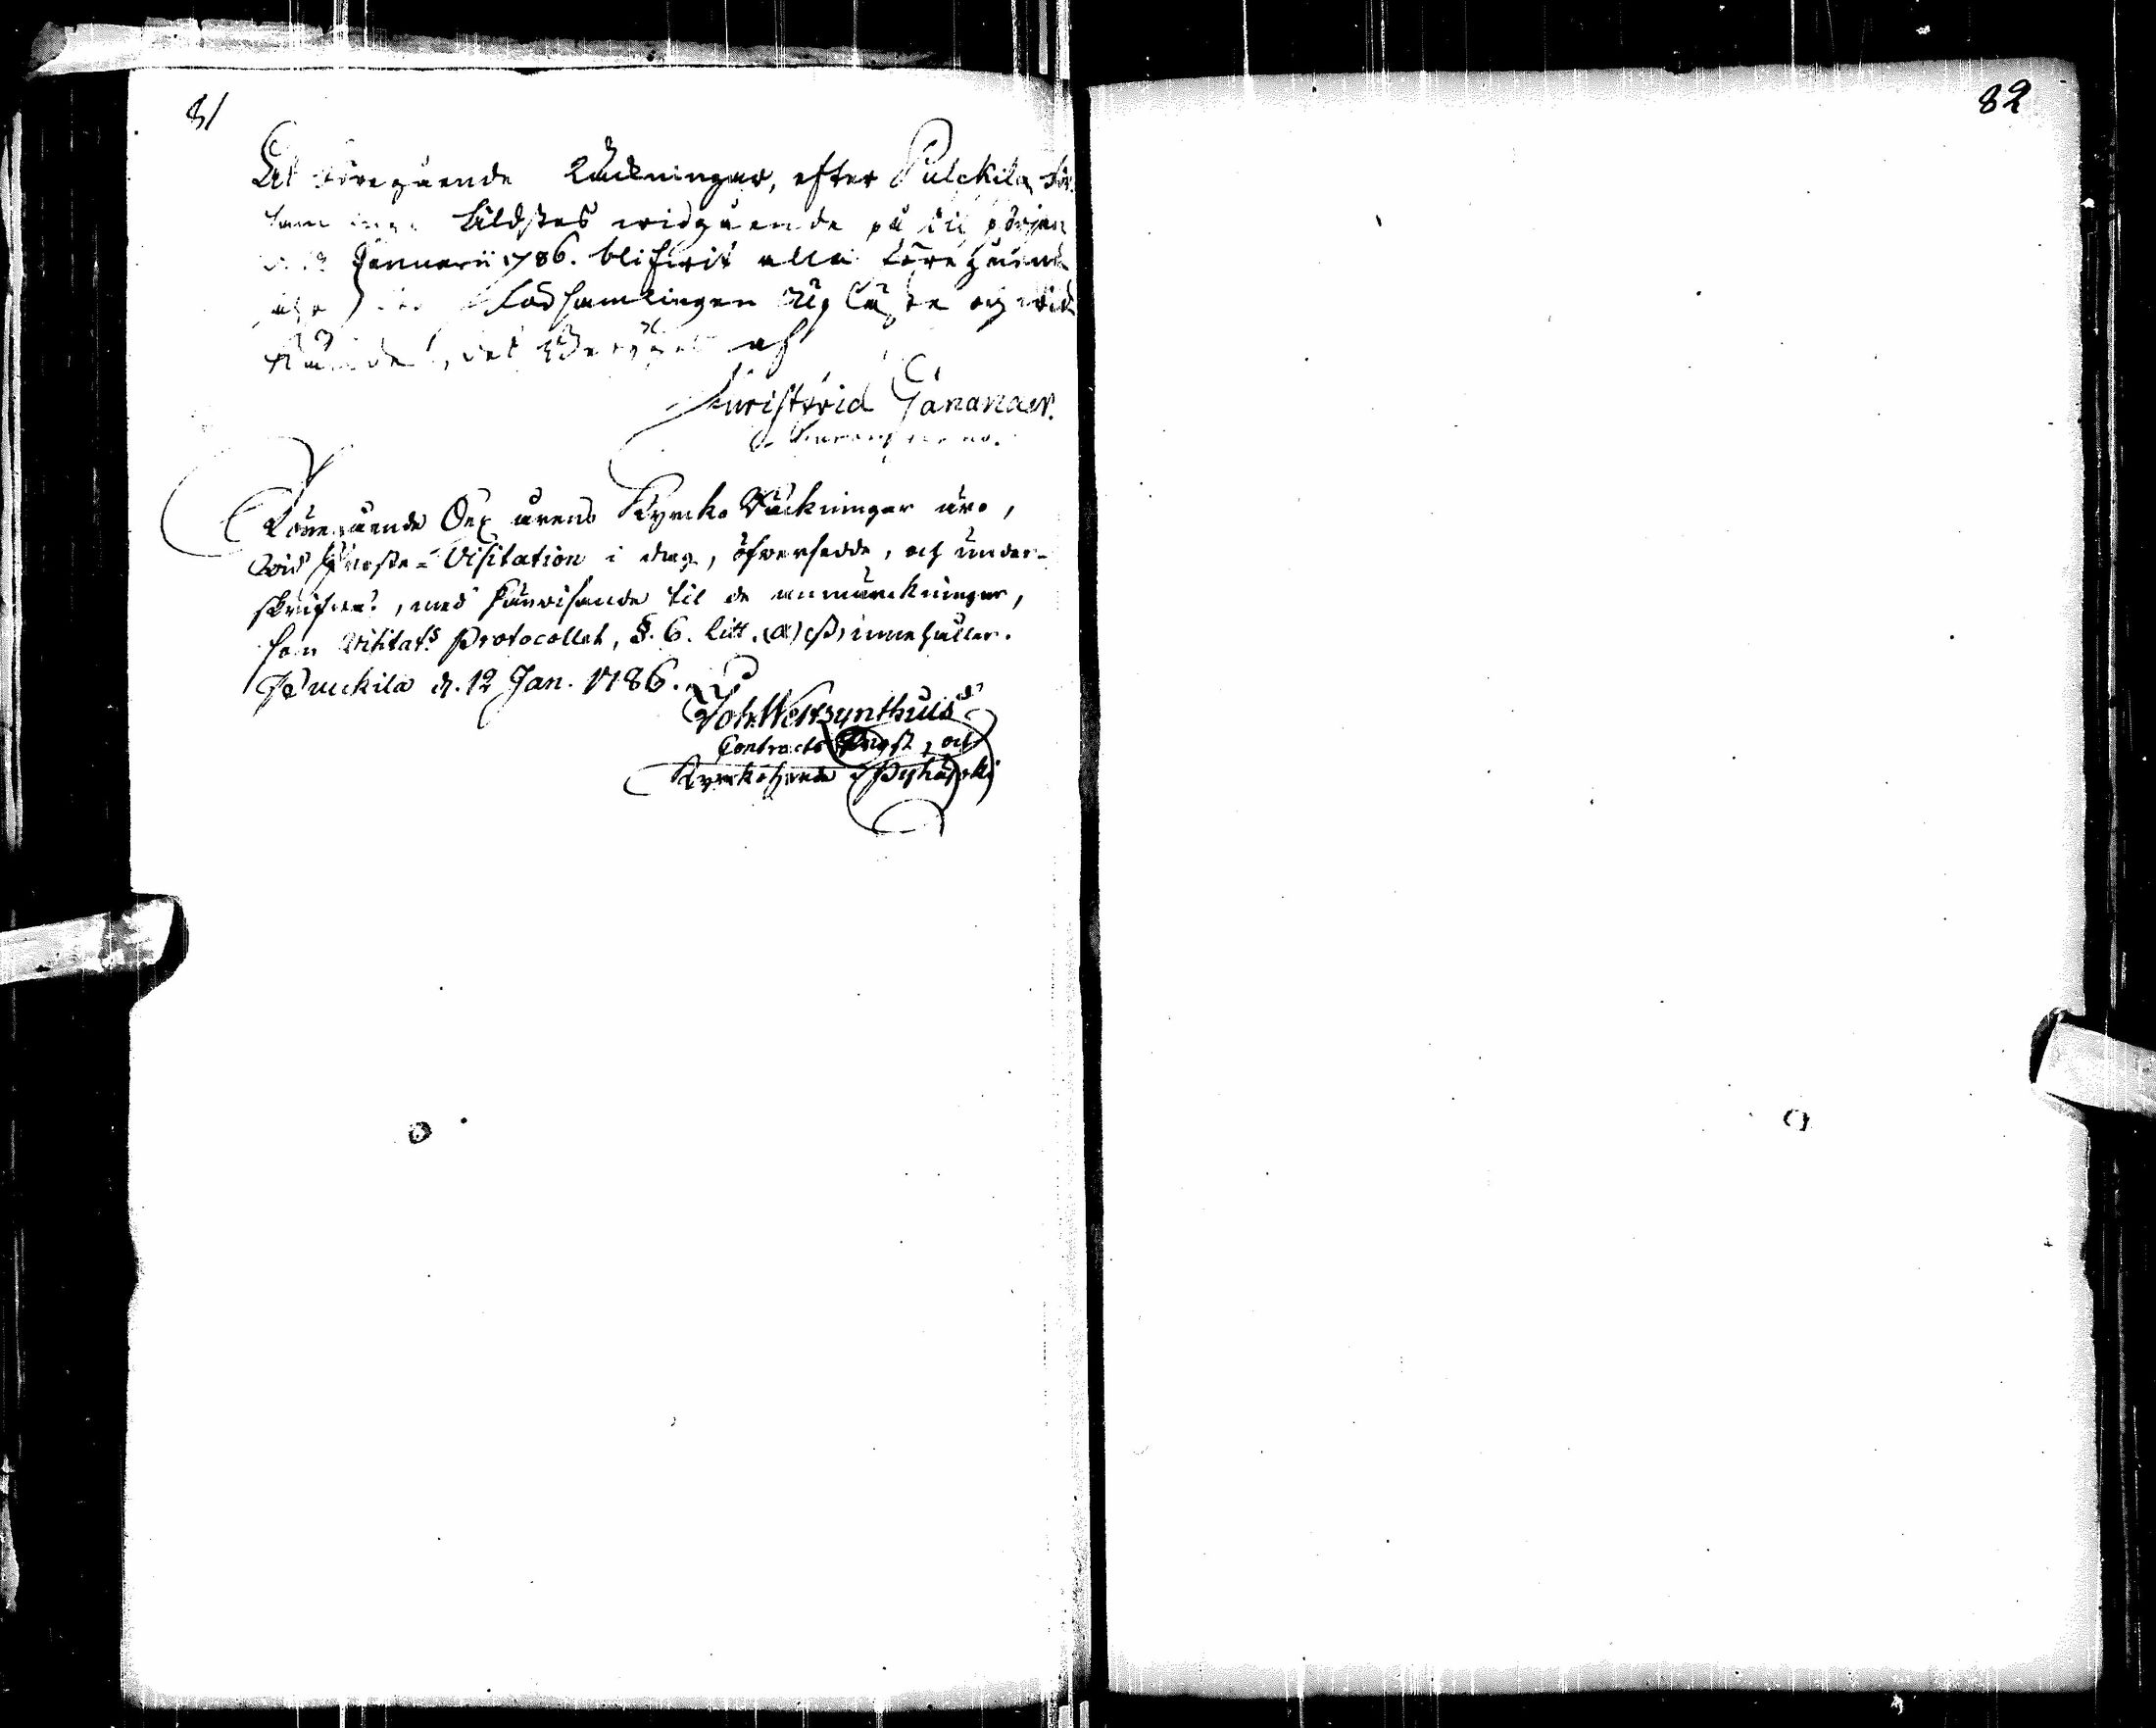 81
82
At föregående Räkningar, efter Pulckila För-
samlings äldstes widgående på
Januarii 1786. blifwit alla föregående
för Församlingen upläste och wid-
det betygar af
Christfrid Ganander.
Föregående Sex årens Kyrcko Räckningar äro,
wid Proste-Visitation i dag, öfwersedde, och under-
skrifne, med hänwisande til de anmärckningar,
som Visitats Protocollet, §. 6. litt. (α) (β) innehåller.
Pulckila d. 12 Jan. 1786.
Joh. Westzynthius
Contracts Prost, och
Kyrkoherde i Pyhäjoki